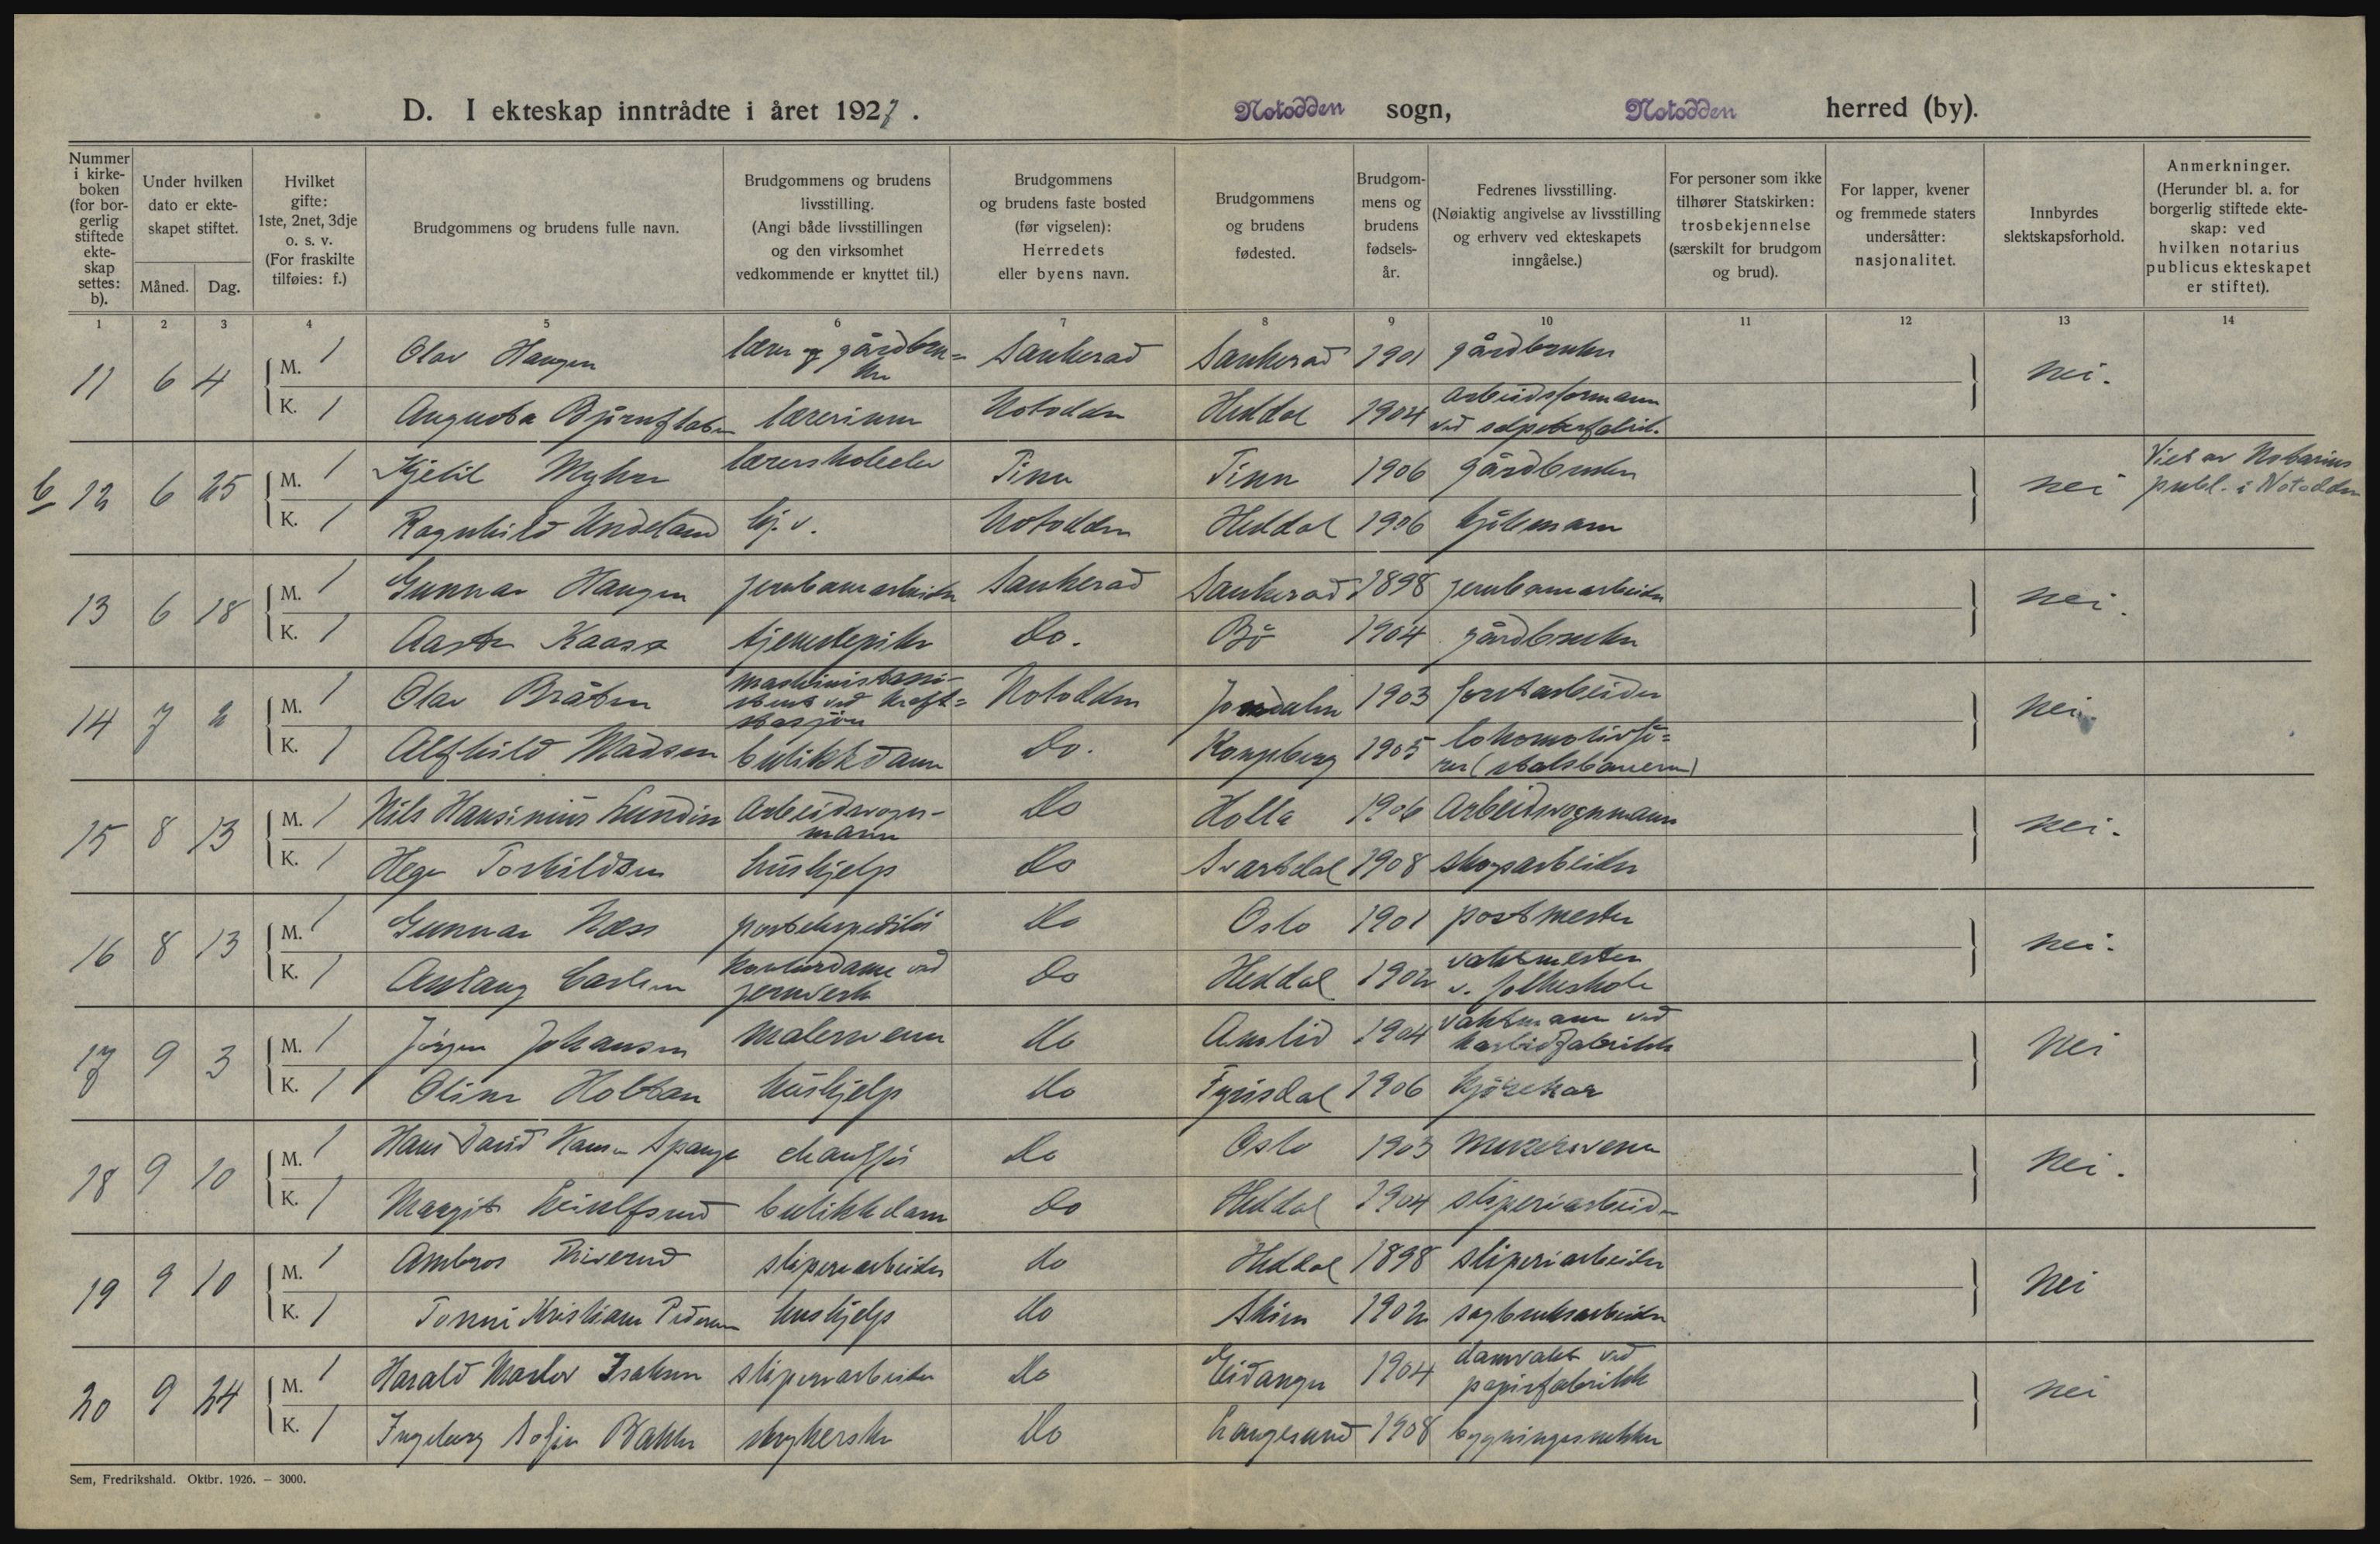 D. I ekteskap inntrådte i året 1927. Notodden sogn, Notodden herred (by).
Nummer i kirkeboken (for borgerlig stiftede ekteskap settes: b).
Under hvilken dato er ekteskapet stiftet.
Måned. Dag.
Hvilket gifte: 1ste, 2net, 3dje o. s. v. (For fraskilte tilføies: f.)
Brudgommens og brudens fulle navn.
Brudgommens og brudens livsstilling. (Angi både livsstillingen og den virksomhet vedkommende er knyttet til.)
Brudgommens og brudens faste bosted (før vigselen): Herredets eller byens navn.
Brudgommens og brudens fødested.
Brudgommens og brudens fødselsår.
Fedrenes livsstilling. (Nøiaktig angivelse av livsstilling og erhverv ved ekteskapets inngåelse.)
For personer som ikke tilhører Statskirken: trosbekjennelse (særskilt for brudgom og brud).
For lapper, kvener og fremmede staters undersåtter: nasjonalitet.
Innbyrdes slektskapsforhold.
Anmerkninger. (Herunder bl. a. for borgerlig stiftede ekteskap: ved hvilken notarius publicus ekteskapet er stiftet).
1 2 3 4 5 6 7 8 9 10 11 12 13 14
11 6 4 M. 1 Olav Haugen lærer og gårdbruker Sauherad Sauherad 1901 gårdbruker nei.
K. 1 Augusta lærerinne Notodden Heddal 1904 arbeidsformann ved salpeterfabrik.
b 12 6 25 M. 1 Kjetil Myhre lærerskoleelev Tinn Tinn 1906 gårdbruker nei Viet av Notarius publ. i Notodden
K. 1 Ragnhild Undeland hj. v. Notodden Heddal 1906 kjøbmann
13 6 18 M. 1 Gunnar Haugen jernbanearbeider Sauherad Sauherad 1898 jernbanearbeider nei.
K. 1 Aaste Kaasa tjenestepike Do. Bø 1904 gårdbruker
14 7 2 M. 1 Olav Bråten maskinistassistent ved kraftstasjon Notodden Jondalen 1903 forstarbeider Nei.
K. 1 Alfhild Madsen butikkdame Do. Kongsberg 1905 lokomotivfører (statsbanerne)
15 8 13 M. 1 Nils Hansinius Lundin Arbeidsvognmann Do Holla 1906 Arbeidsvognmann nei.
K. 1 Hege Torkildsen hushjelp Do Svartdal 1908 skogsarbeider
16 8 13 M. 1 Gunnar Næss postekspeditør Do Oslo 1901 postmester nei.
K. 1 Aslaug Carlsen kontordame ved jernverk Do Heddal 1902 vaktmester v. folkeskole
17 9 3 M. 1 Jørgen Johansen Malersvenn do Åmlid 1904 vaktmann ved karbidfabrikk Nei
K. 1 Oline Holtan hushjelp do Fyrisdal 1906 kjørekar
18 9 10 M. 1 Hans David Hansen Spange chauffør Do Oslo 1903 Murersvenn nei.
K. 1 Margit Leiulfsrud butikkdame Do Heddal 1904 sliperiarbeid.
19 9 10 M. 1 Ambros sliperiarbeider do Heddal 1898 sliperiarbeider Nei
K. 1 Tonni Kristiane Pedersen hushjelp do Skien 1902 sagbruksarbeider
20 9 24 M. 1 Harald Marlov Isaksen sliperiarbeider Do Eidanger 1904 damvakt ved papirfabrikk nei
K. 1 Ingeborg Sofie Bakke strykerske Do Langesund 1908 bygningssnekker
Sem, Fredrikshald. Oktbr. 1926. — 3000.